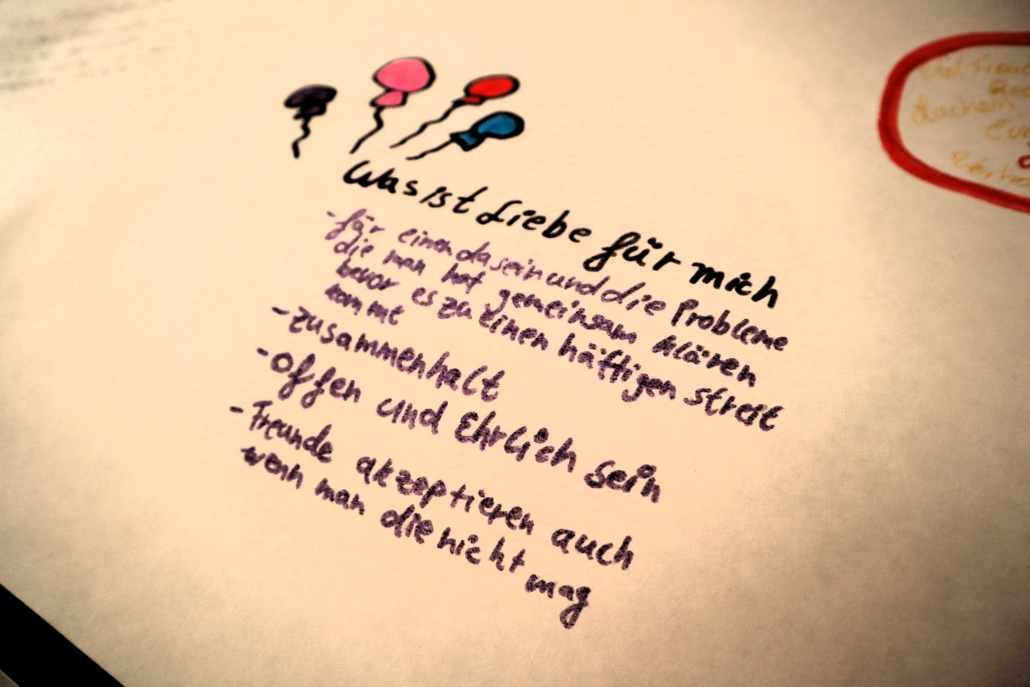 Was ist Liebe für mich
- für einen dasein und die Probleme
die man hat gemeinsam klären
bevor es zu einen häftigen streit
kommt
- zusammenhalt
- offen und Ehrlich sein
- Freunde akzeptieren auch
wenn man die nicht mag